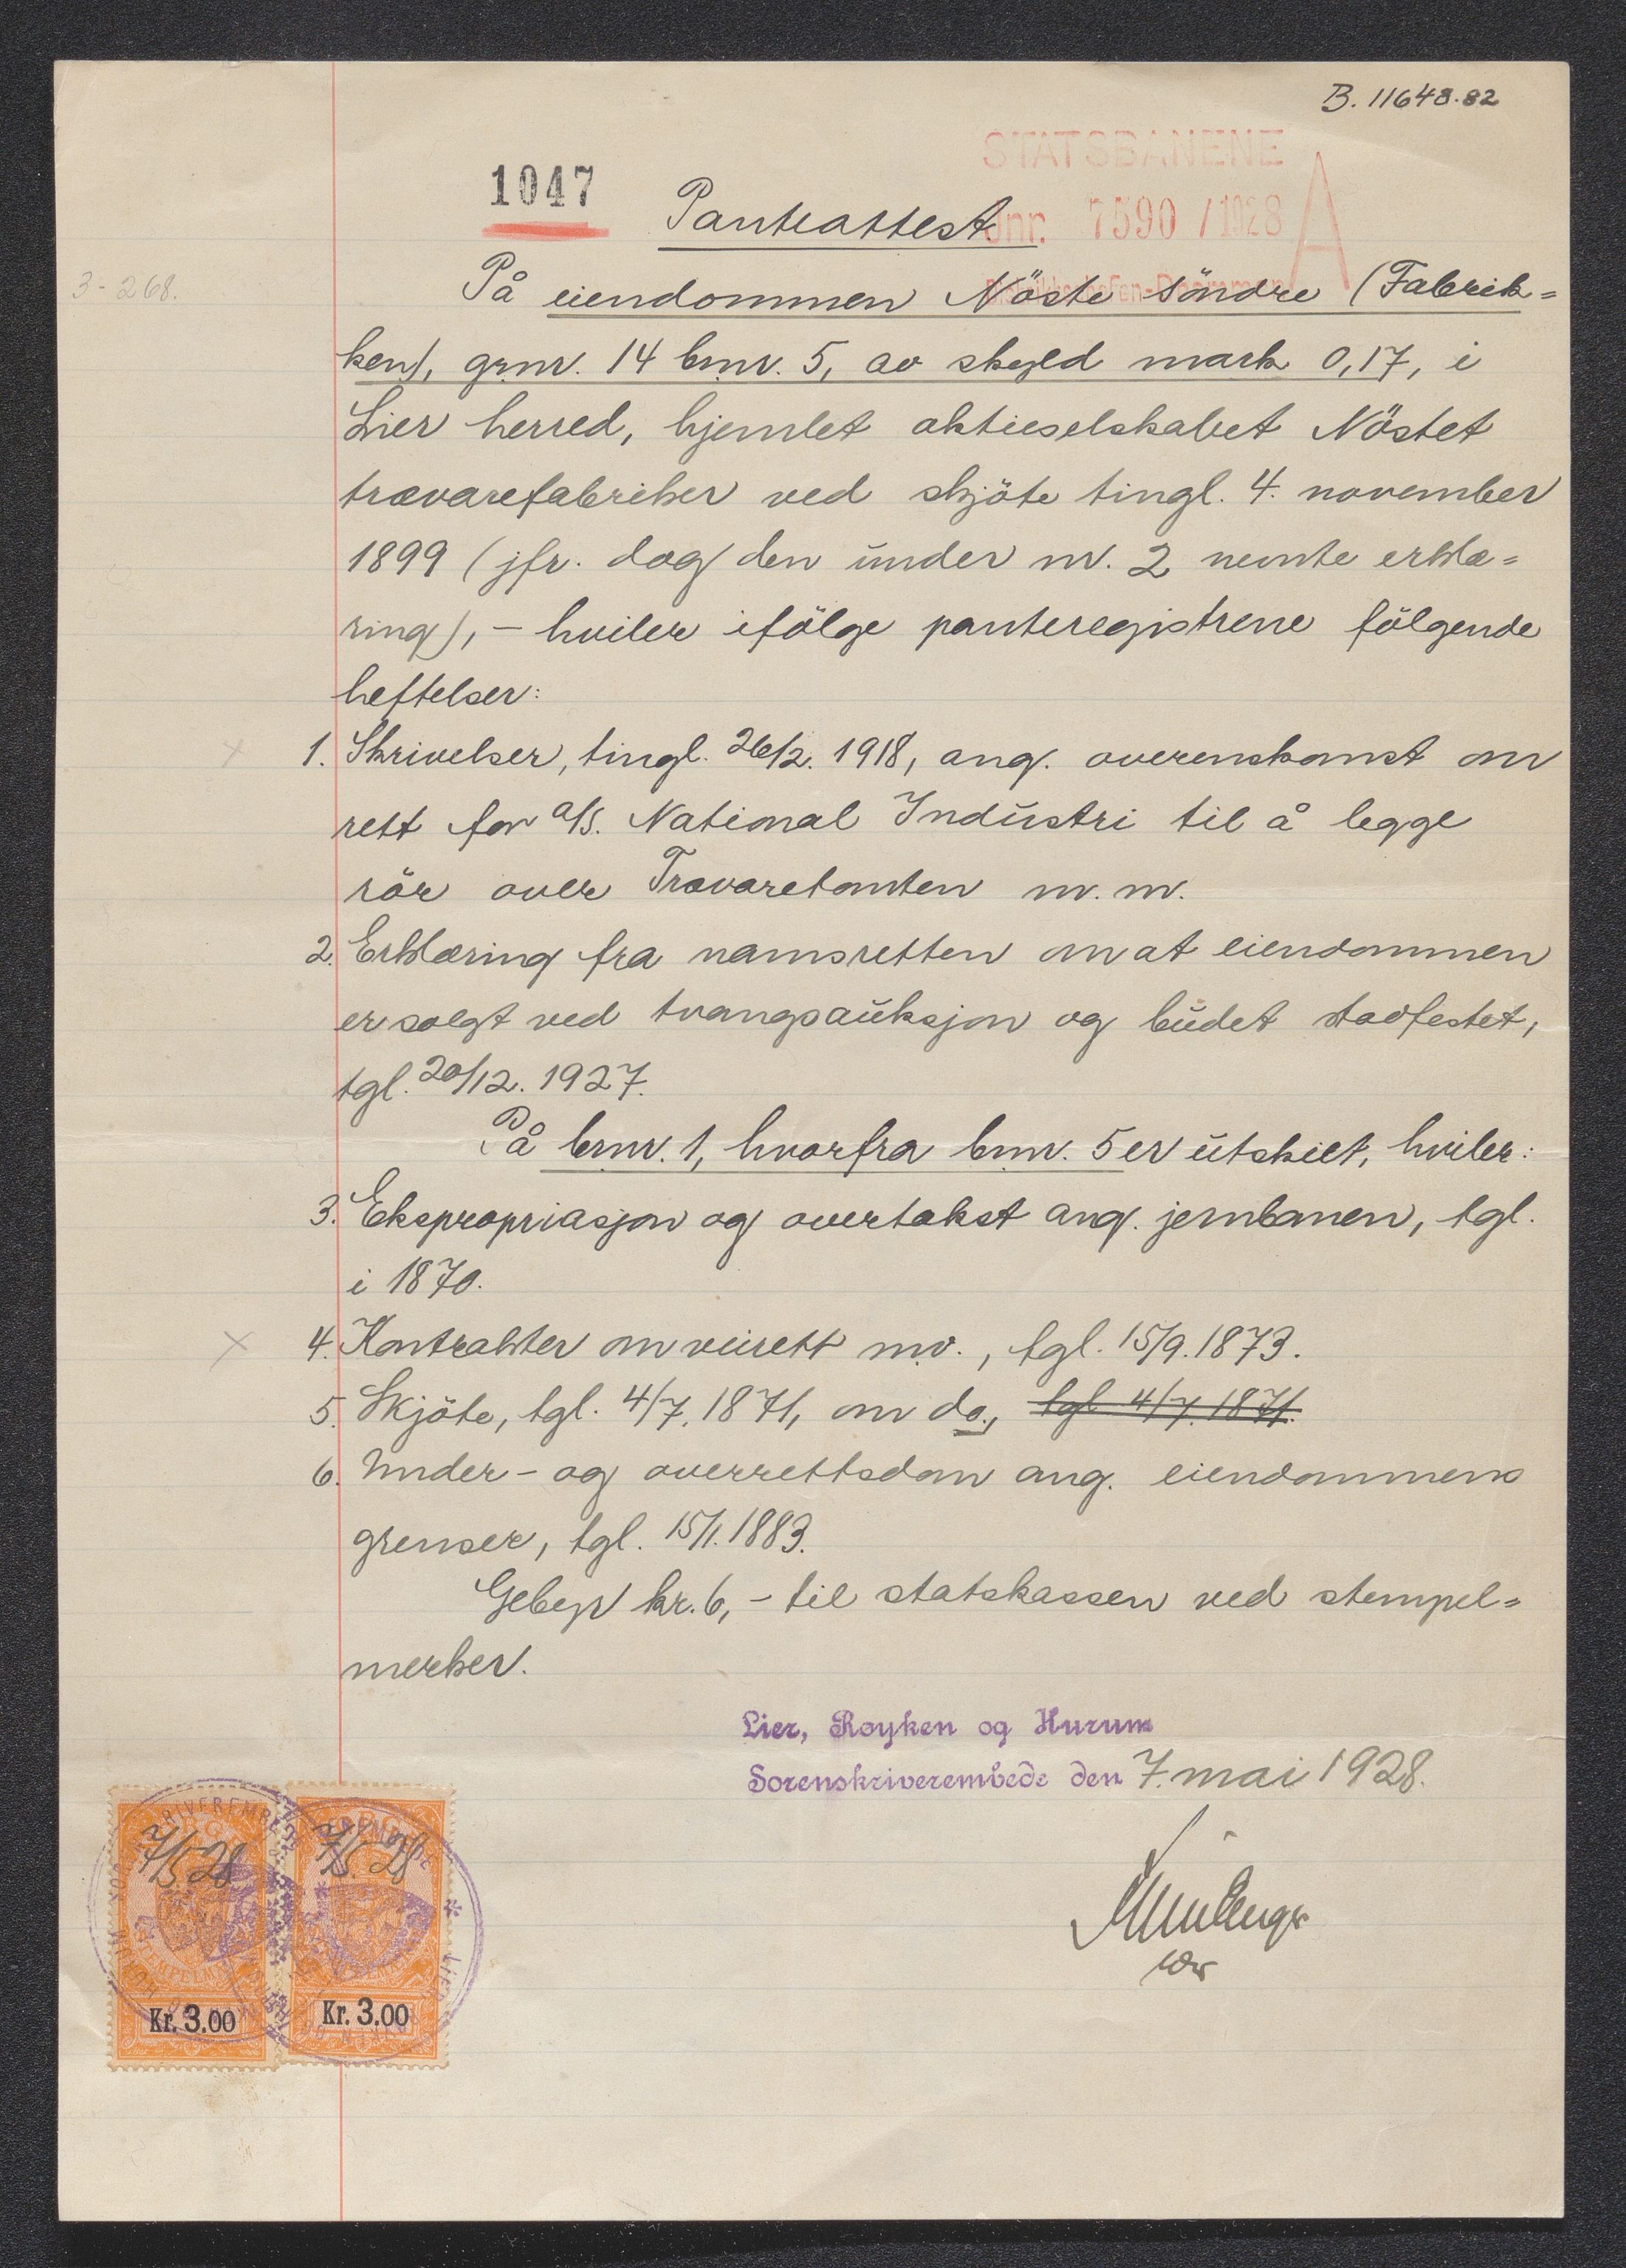 B. 11648.82
STATSBANENE
1047
Panteattest
Jnr. 7590 / 1928 A
3-268.
På eiendommen Nöste söndre (Fabrik=
ken), grnr. 14 brnr. 5, av skyld mark 0,17, i
Lier herred, hjemlet aktieselskabet Nöstet
trævarefabriker ved skjöte tingl. 4. november
1899 (jfr. dog den under nr. 2 nevnte erklæ=
ring), - hviler ifölge panteregistrene fölgende
heftelser:
1. Skrivelser, tingl. 26/2. 1918, ang. overenskomst om
rett for a/s. National Industri til å legge
rör over Trævaretomten m.m.
2. Erklæring fra namsretten om at eiendommen
er solgt ved tvangsauksjon og budet stadfestet,
tgl. 20/12. 1927.
På brnr. 1, hvorfra brnr. 5 er utskilt, hviler:
3. Ekspropriasjon og overtakst ang. jernbanen, tgl.
i 1870.
4. Kontrakter om veirett m.v., tgl. 15/9. 1873.
5. Skjöte, tgl. 4/7. 1871, om do., tgl 4/7. 1871.
6. Under- og overrettsdom ang. eiendommens
grenser, tgl. 15/1. 1883.
Gebyr kr. 6,- til statskassen ved stempel=
merker.
Lier, Royken og Hurum
Sorenskriverembede den 7. mai 1928.
7/5 28 7/5. 28
Kr. 3.00 Kr. 3.00